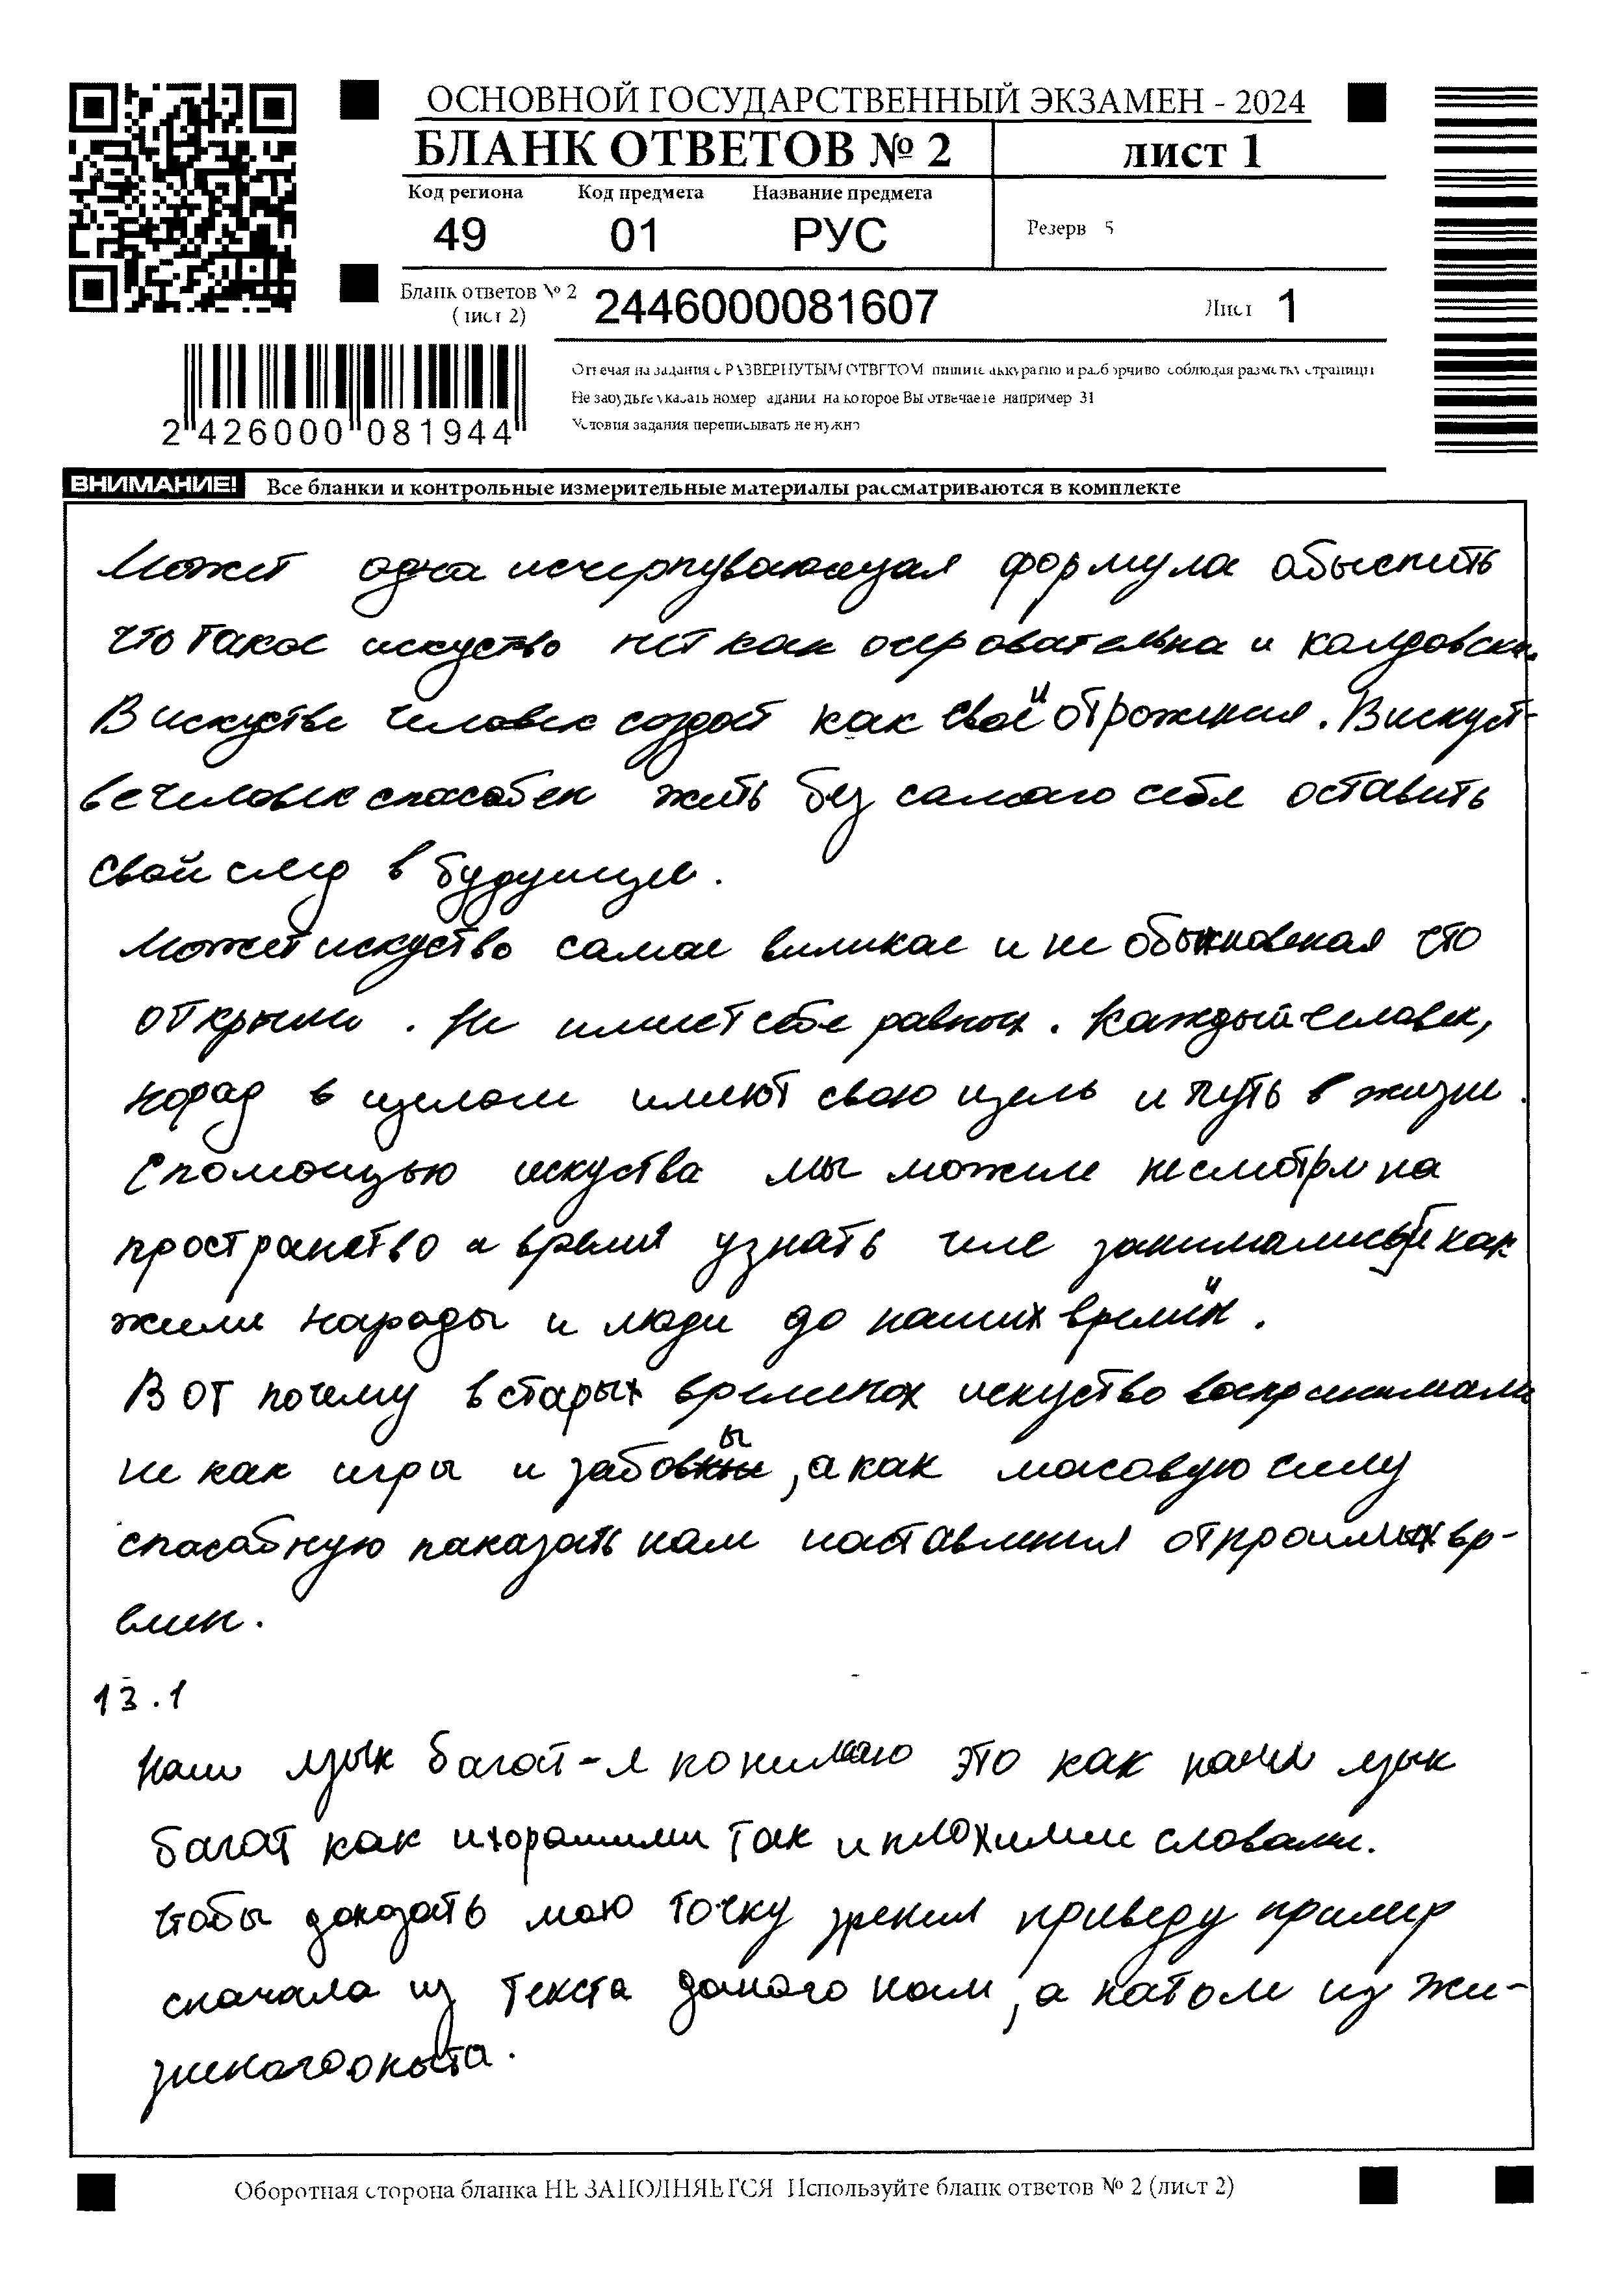 ОСНОВНОЙ ГОСУДАРСТВЕННЫЙ ЭКЗАМЕН - 2024
БЛАНК ОТВЕТОВ № 2 лист 1
Код региона Код предмета Название предмета
49 01 РУС
Резерв 5
Бланк ответов № 2 (лист 2) 2446000081607 Лист 1
2 426000 081944
Отвечая на задания с РАЗВЕРНУТЫМ ОТВЕТОМ пишите аккуратно и разборчиво соблюдая разметку страницы
Не забудьте указать номер задания на которое Вы отвечаете например 31
Условия задания переписывать не нужно
ВНИМАНИЕ! Все бланки и контрольные измерительные материалы рассматриваются в комплекте
Может одна исчерпувающая формула
что такое искуство нет как очеровательна и
В искустве человек создоёт как свой отрожения. В искуст-
ве человек спасобен жить без самого себя оставить
свой след в будующем.
Может искуство самое виликае и не обыкновеная что
открыли. Не имеет себе равных. Каждый человек,
норад в целом имеют свою цель и путь в жизни.
С помощью искуства мы можем несмотря на
пространство и время узнать чем занимались и как
жили народы и люди до наших времён.
Вот почему в старых временах искуство воспринимали
не как игры и забовы, а как масовую силу
спасобную паказать нам наставления от прошлых вр-
емен.
13.1
Наш язык багат-я понимаю это как наш язык
багат как и хорашими так и плохими словами.
Чтобы доказать маю точку зрения приведу пример
сначала из текста даного нам, а патом из жи-
зненого опыта.
Оборотная сторона бланка НЕ ЗАПОЛНЯЕТСЯ Используйте бланк ответов № 2 (лист 2)